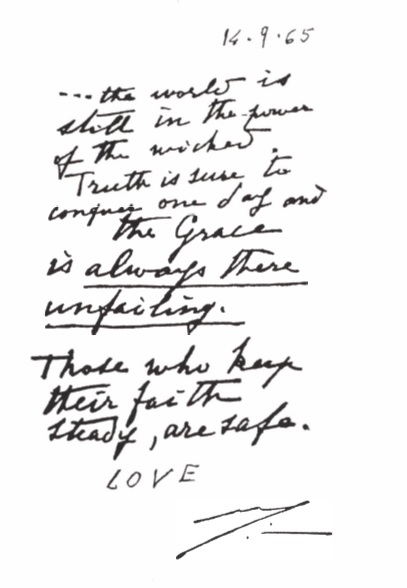 14.9.65
...the world is
still in the power
of the wicked.
Truth is sure to
conquer one day and
the Grace
is always there
unfailing.
Those who keep
their faith
steady, are safe.
LOVE